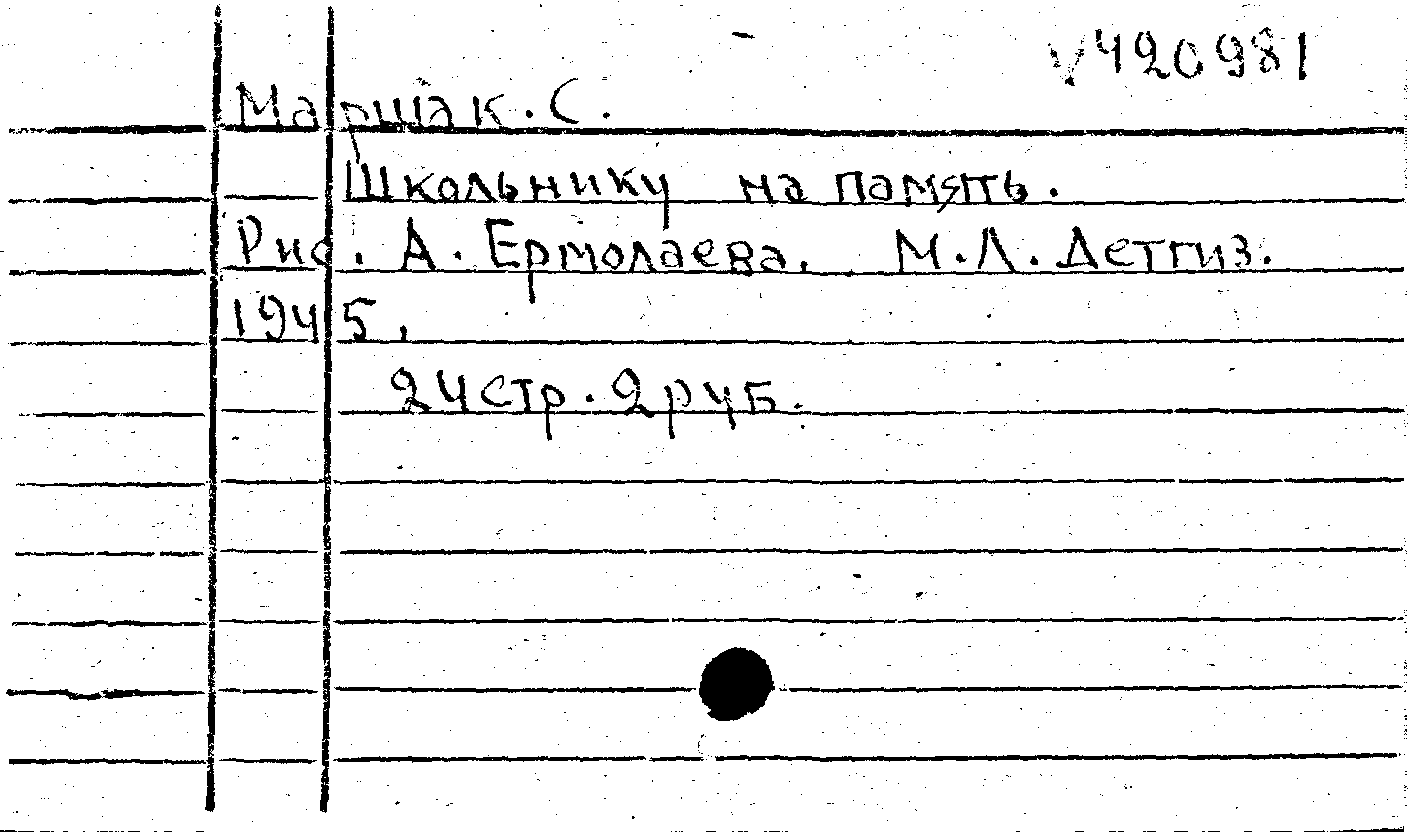 V420981
Маршак. С.
Школьнику на память.
Рис. А. Ермолаева. М.Л. Детгиз.
1945.
24стр. 2руб.